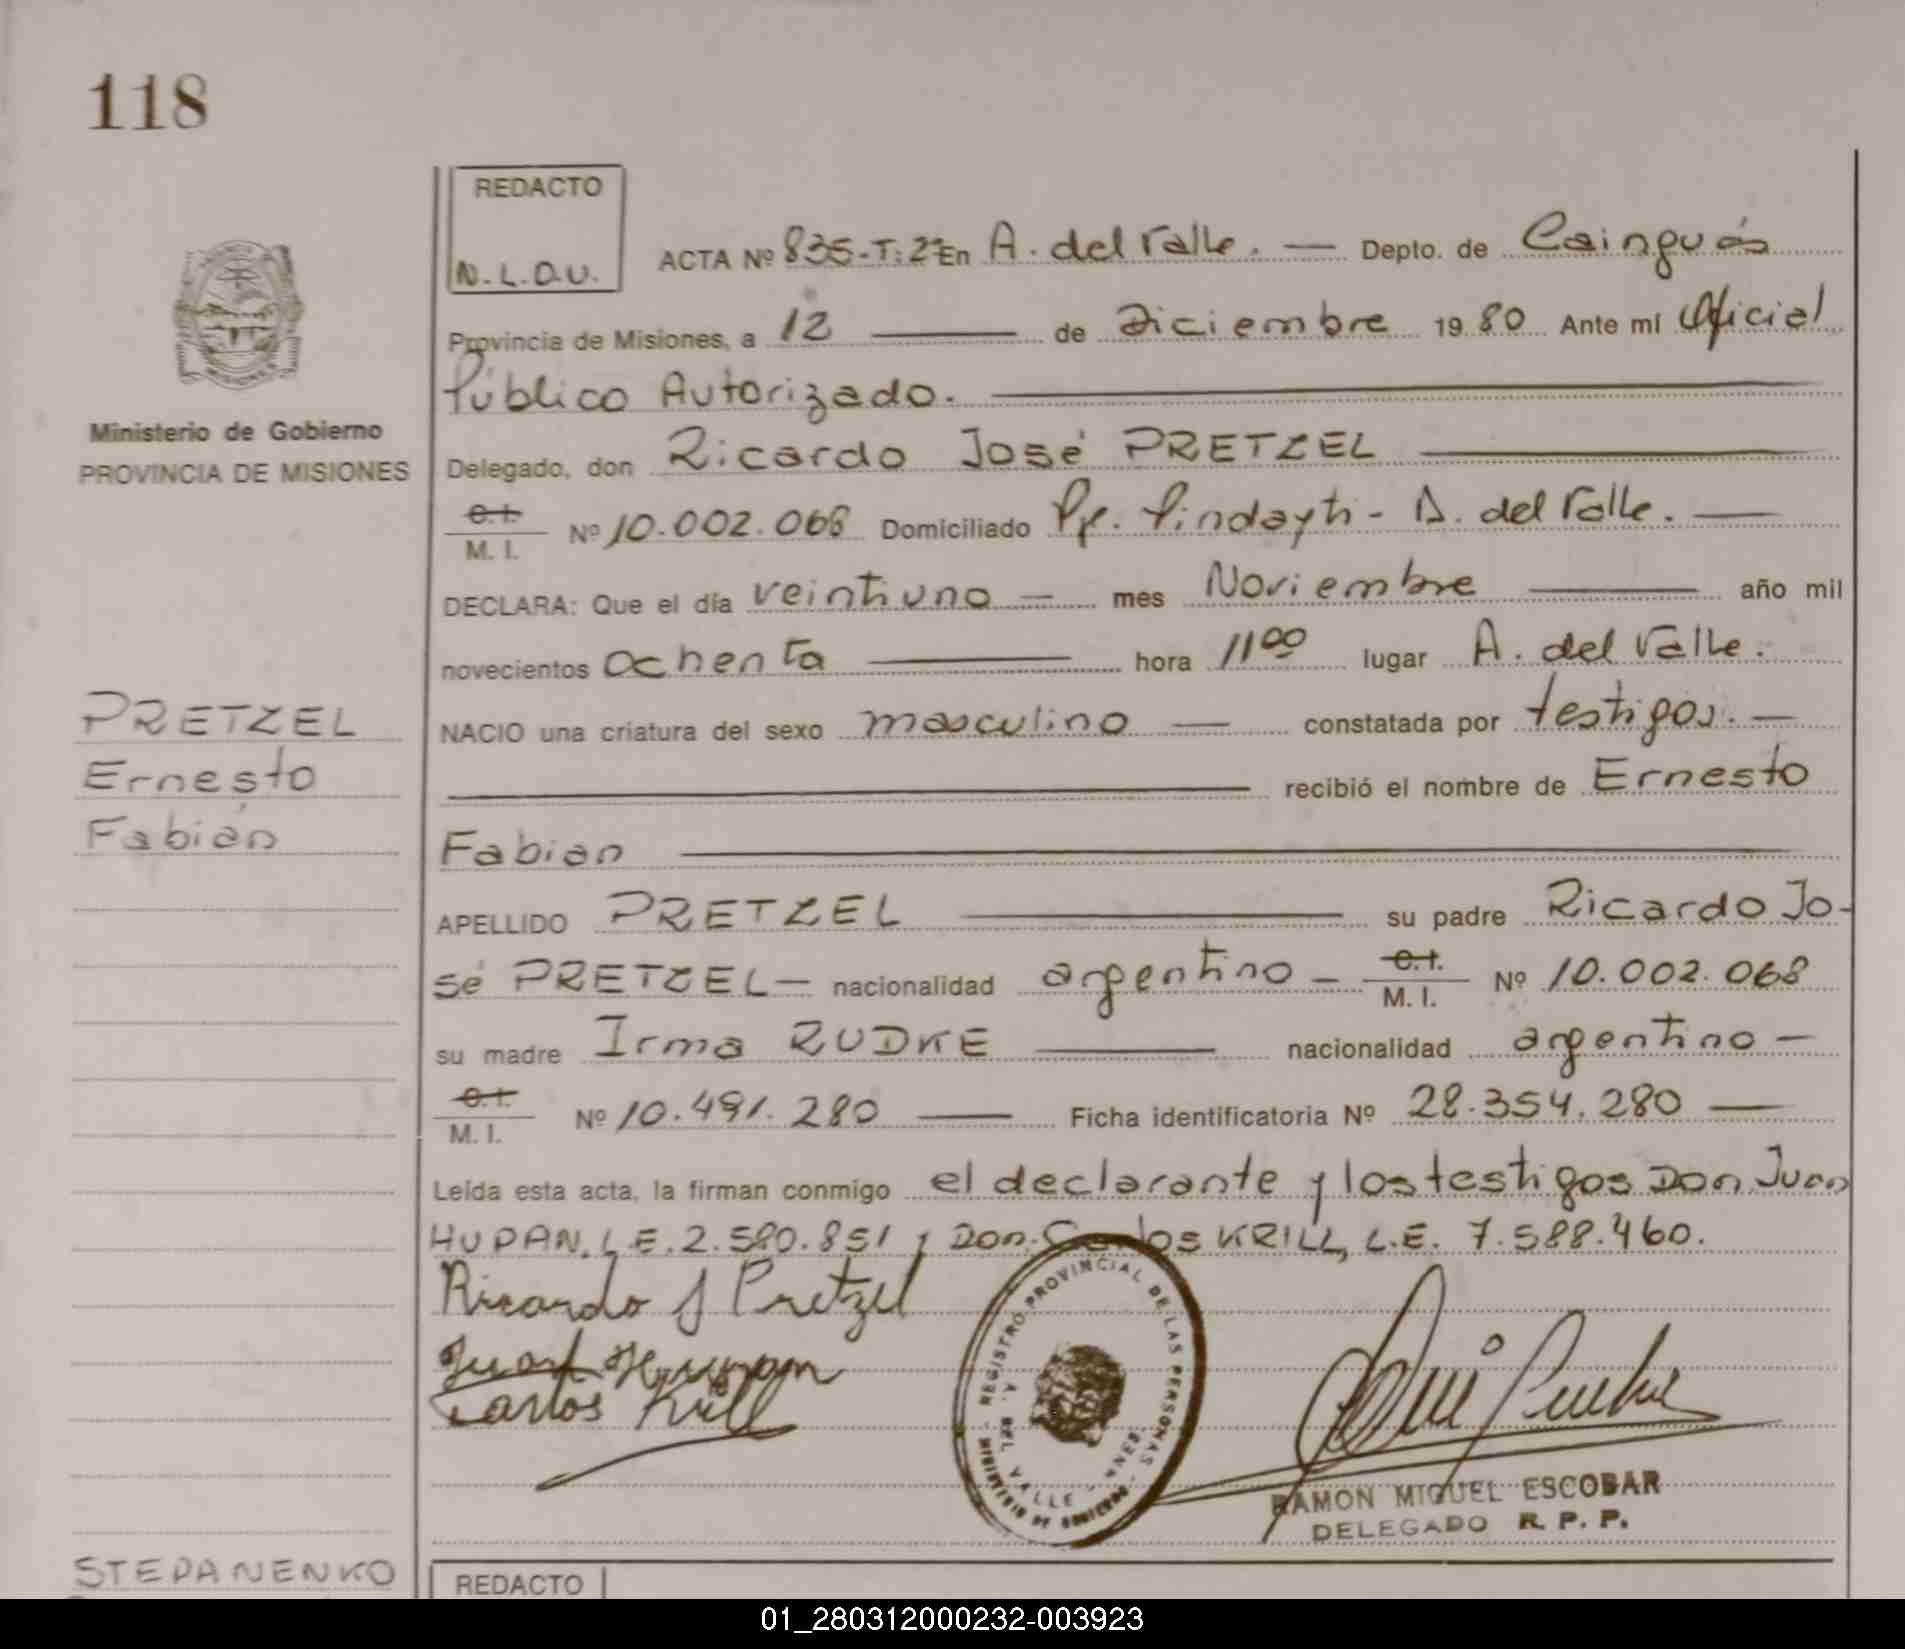 118
REDACTO
N.L.D.U.
ACTA Nº 835-T:2º En A. del Valle. — Depto. de Cainguás
Provincia de Misiones, a 12 — de Diciembre 1980 Ante mí Oficial
Público Autorizado.
Ministerio de Gobierno
PROVINCIA DE MISIONES
Delegado, don Ricardo José PRETZEL
C.I.
M. I. Nº 10.002.068 Domiciliado Pje. Pindayti - A. del Valle. —
DECLARA: Que el día veintiuno — mes Noviembre — año mil
novecientos ochenta — hora 11 00 lugar A. del Valle.
PRETZEL
Ernesto
Fabián
NACIO una criatura del sexo masculino — constatada por testigos. —
— recibió el nombre de Ernesto
Fabian —
APELLIDO PRETZEL — su padre Ricardo Jo-
sé PRETZEL — nacionalidad argentino — C.I. M. I. Nº 10.002.068
su madre Irma RUDKE — nacionalidad argentino —
C.I.
M. I. Nº 10.491.280 — Ficha identificatoria Nº 28.354.280 —
Leída esta acta, la firman conmigo el declarante y los testigos Don Juan
HUPAN, L.E. 2.580.851 y Don Carlos KRILL, L.E. 7.588.460.
Ricardo J Pretzel
Juan Hupan
Carlos Krill
REGISTRO PROVINCIAL DE LAS PERSONAS
MINISTERIO DE GOBIERNO
A. DEL VALLE - MNES.
RAMON MIGUEL ESCOBAR
DELEGADO R. P. P.
STEPANENKO
REDACTO
01_280312000232-003923